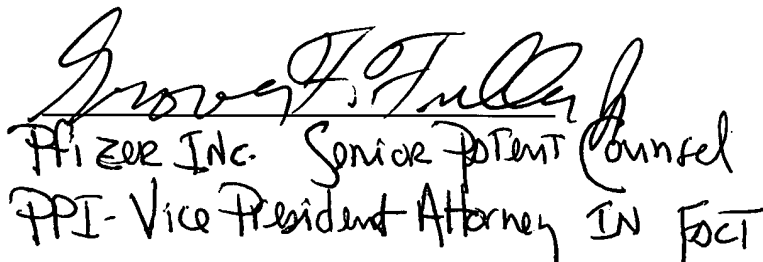 Grover F. Fuller Jr
Pfizer INC. Senior Patent Counsel
PPI-Vice President Attorney IN FACT